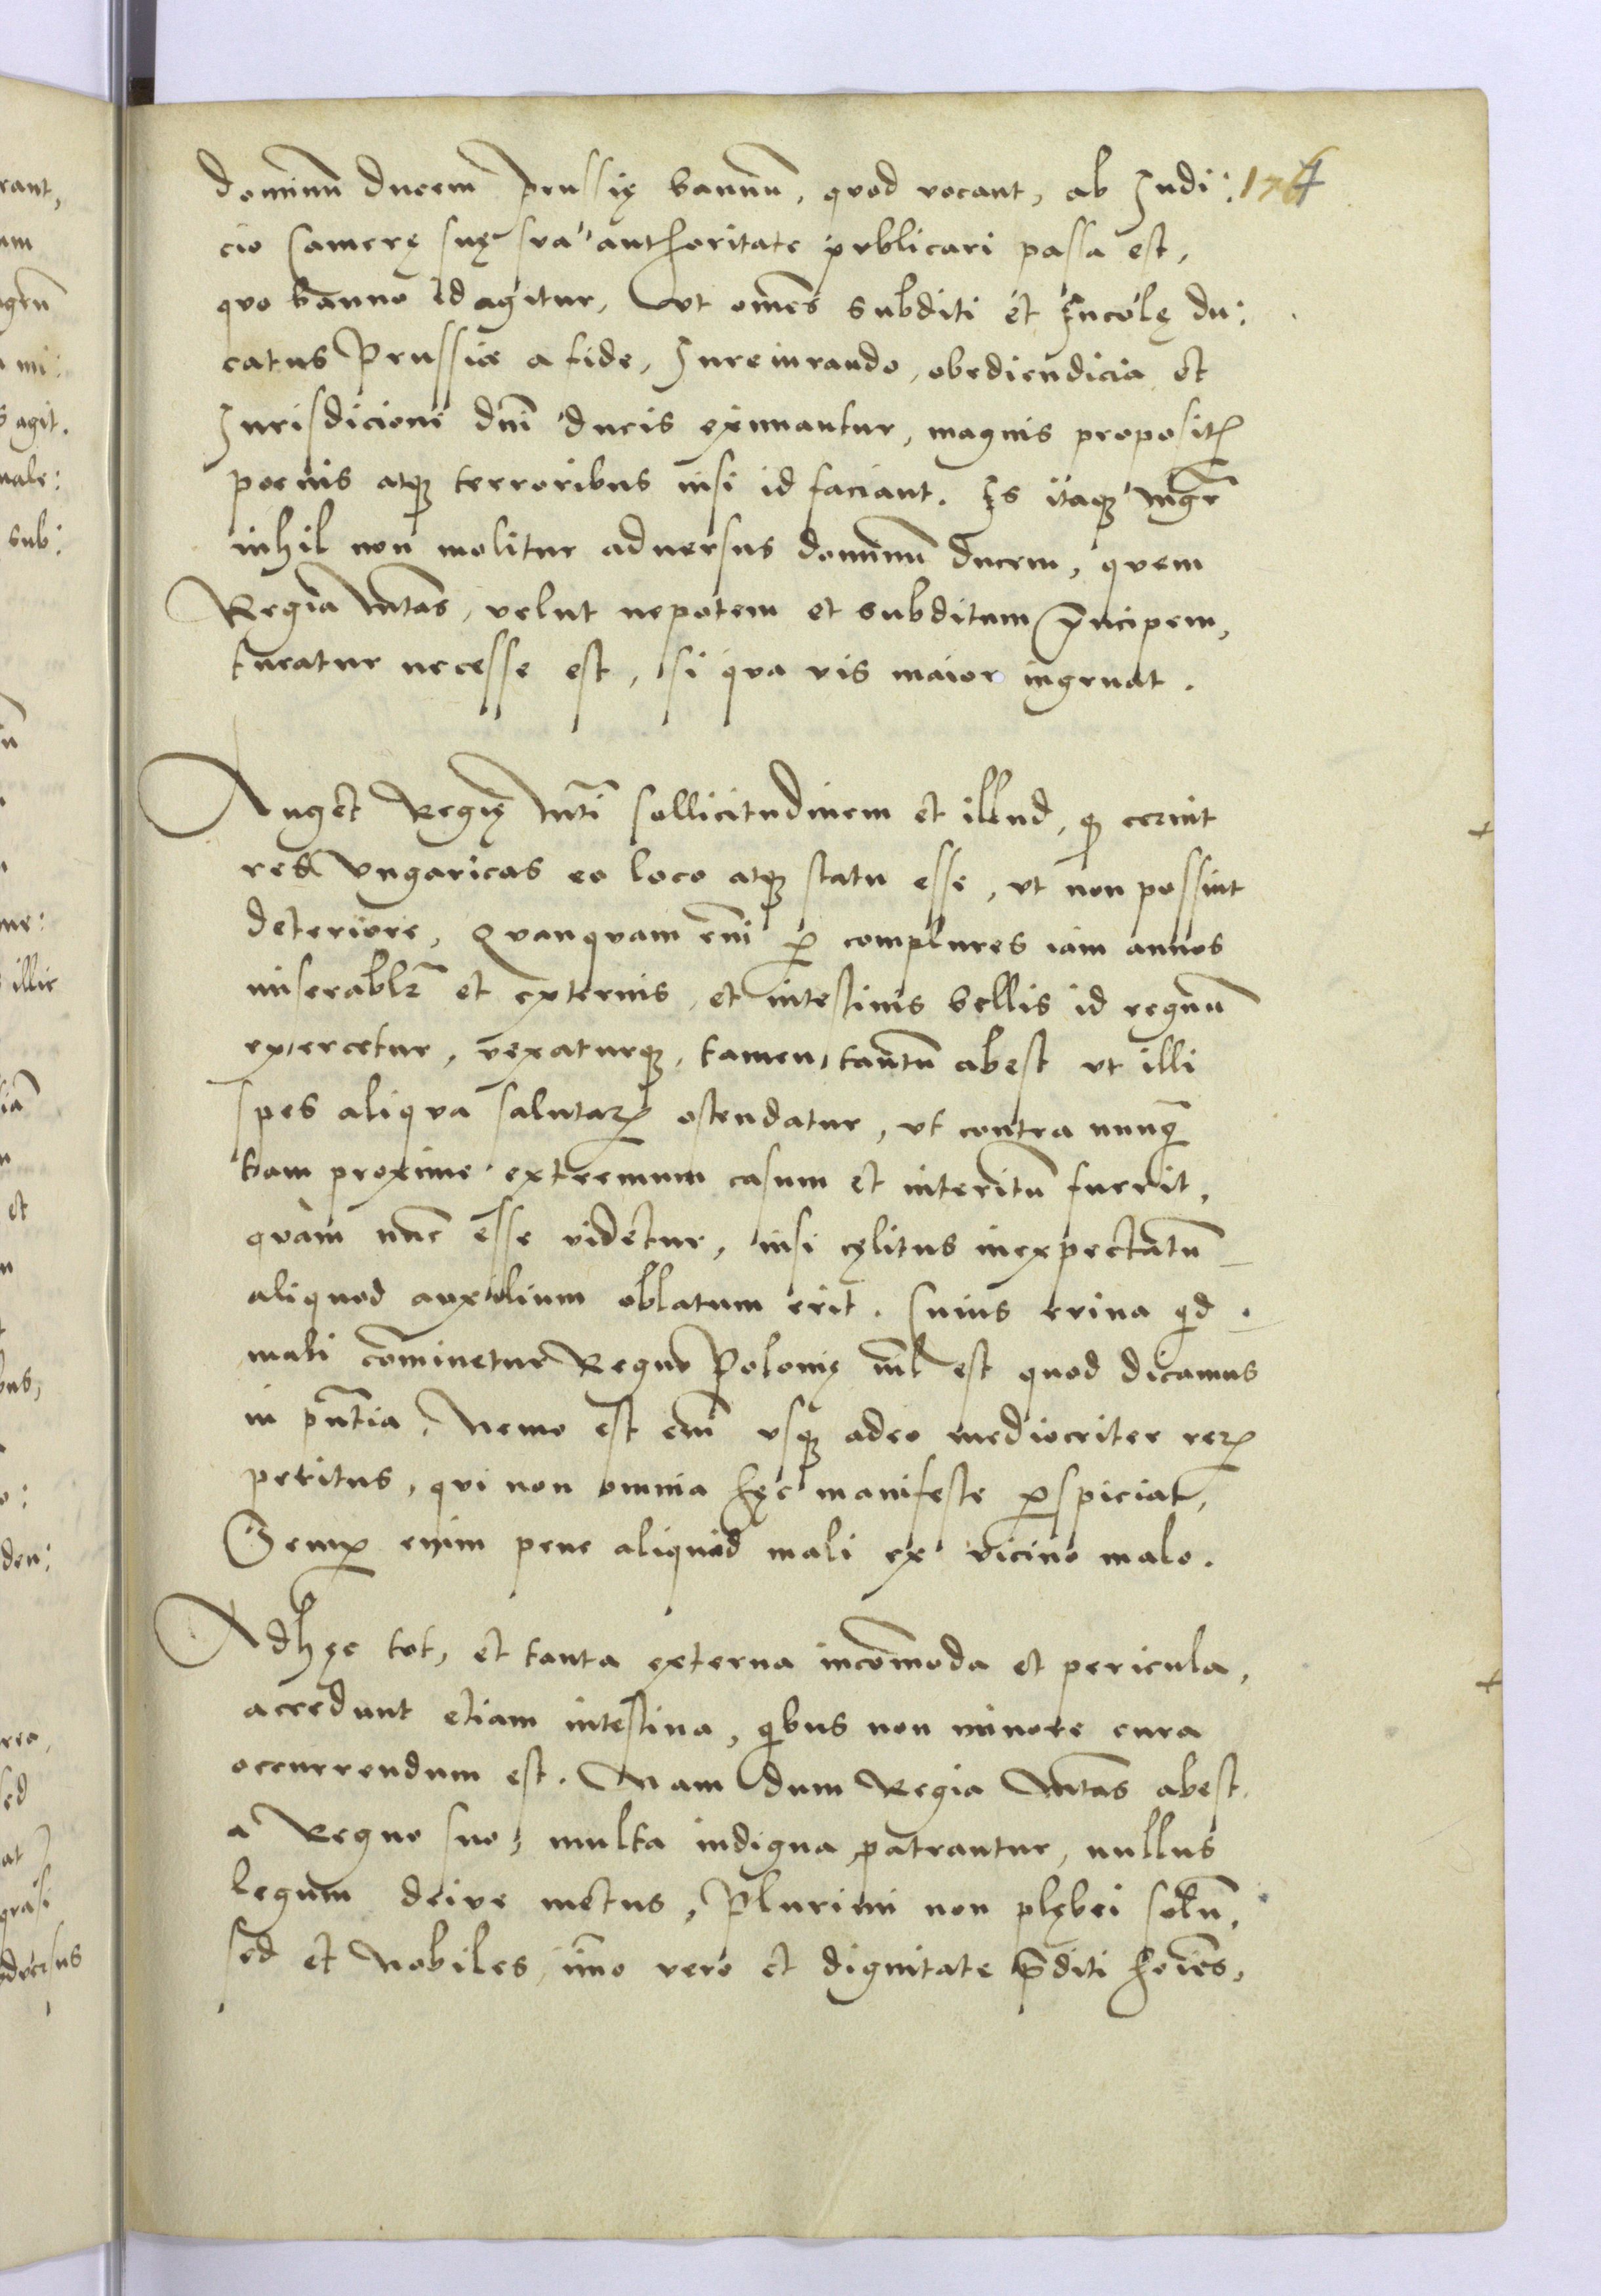 dominũ ducem Prussię bannũ, quod vocant, ab Judi: 174
cio Camerę suę sua authoritate publicari passa est,
quo banno id agitur, Vt om̃es subditi et Incolę du:
catus Prussiæ a fide, Jureiurando, obediendicia et
Jurisdicioni dñi ducis eximantur, magnis propositꝭ
poenis atqꝫ terroribus nisi id faciant. Is itaqꝫ Mgr̃
nihil non molitur aduersus dominũ ducem, quem
Regia Mtas̃, velut nepotem et subditum p̃ncipem,
tueatur necesse est, si qua vis maior ingruat.
Auget Regię Mti̇̃ sollicitudinem et illud, ꝙ cernit
res Vngaricas eo loco atqꝫ statu esse, vt non possint
deteriore, Quanquam em̃ ꝑ complures iam annos
miserablr̃ et externis, et intestinis bellis id regnũ
exercetur, vexaturqꝫ, tamen tantũ abest vt illi
spes aliqua salutarꝭ ostendatur, vt contra nunq̃
tam proxime extremum casum et interitũ fuerit,
quam nũc esse videtur, nisi cęlitus inexpectatũ
aliquod auxilium oblatum erit. Cuius ruina qd
mali com̃inetur Regno Polonię nil̃ est quod dicamus
in pñtia, Nemo est em̃ vsqꝫ adeo mediocriter reꝝ
peritus, qui non omnia hęc manifeste ꝑspiciat,
Semꝑ enim pene aliquod mali ex vicino malo.
Adhęc tot, et tanta externa incom̃oda et pericula,
accedunt etiam intestina, qibus non minore cura
occurrendum est. Nam dum Regia Mtas̃ abest
a Regno suo, multa indigna patrantur, nullus
legum deive metus, Plurimi non plębei solũ,
sed et Nobiles, im̃o vero et dignitate p̃diti hoiẽs,